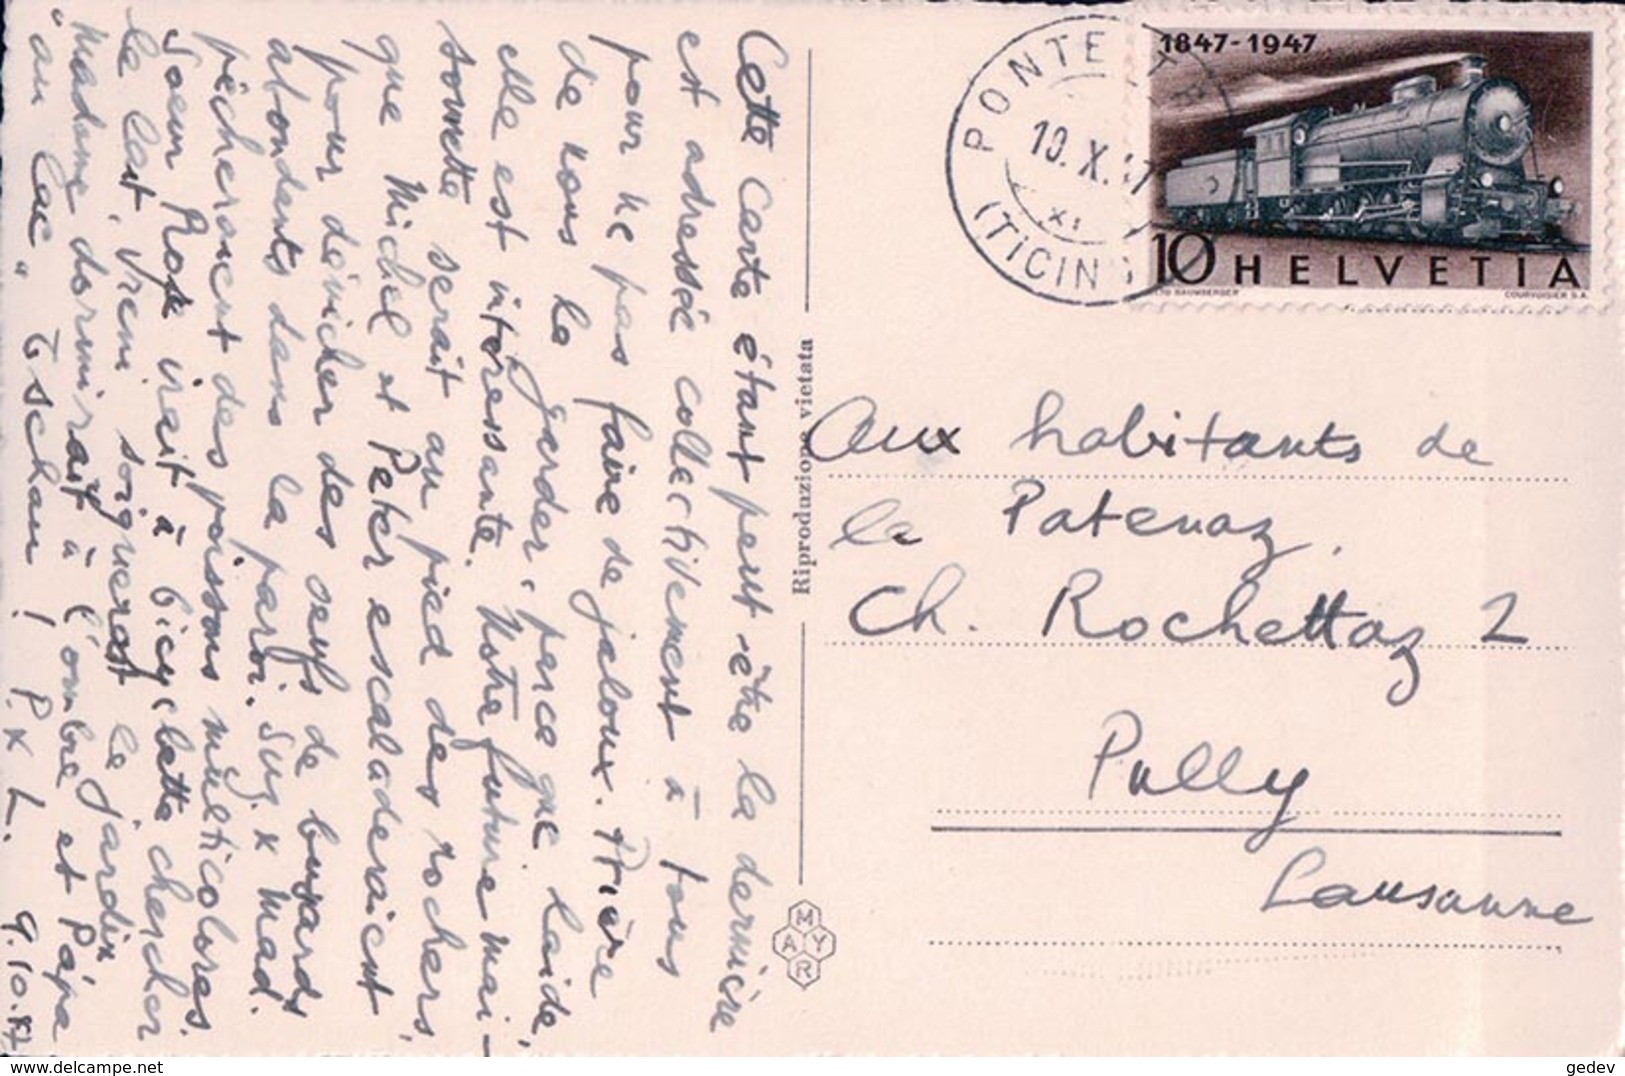 Cette carte étant peut-être la dernière
est adressée collectivement à tous
pour ne pas faire de jaloux. Prière
de nous la garder, parce que laide,
elle est intéressante. Notre future mai-
sonnette serait au pied des rochers,
que Michel et Peter escaladeraient
pour dénicher des oeufs de busards
abondents dans la paroi. Suz. x Mad.
pêcheraient des poissons multicolores.
Soeur Rose irait à bicyclette chercher
le lait, Vreni soignerait le jardin
Madame dormirait à l'ombre et Pápa
"au lac" Tschau ! P. x L. 9.10.47
Riproduzione vietata
MAYR
PONTE
(TICIN
10.X.47
XI
1847-1947
10 HELVETIA
OTTO BAUMBERGER
COURVOISIER S.A.
Aux habitants de
la Patenaz,
Ch. Rochettaz 2
Pully
Lausanne
gedev